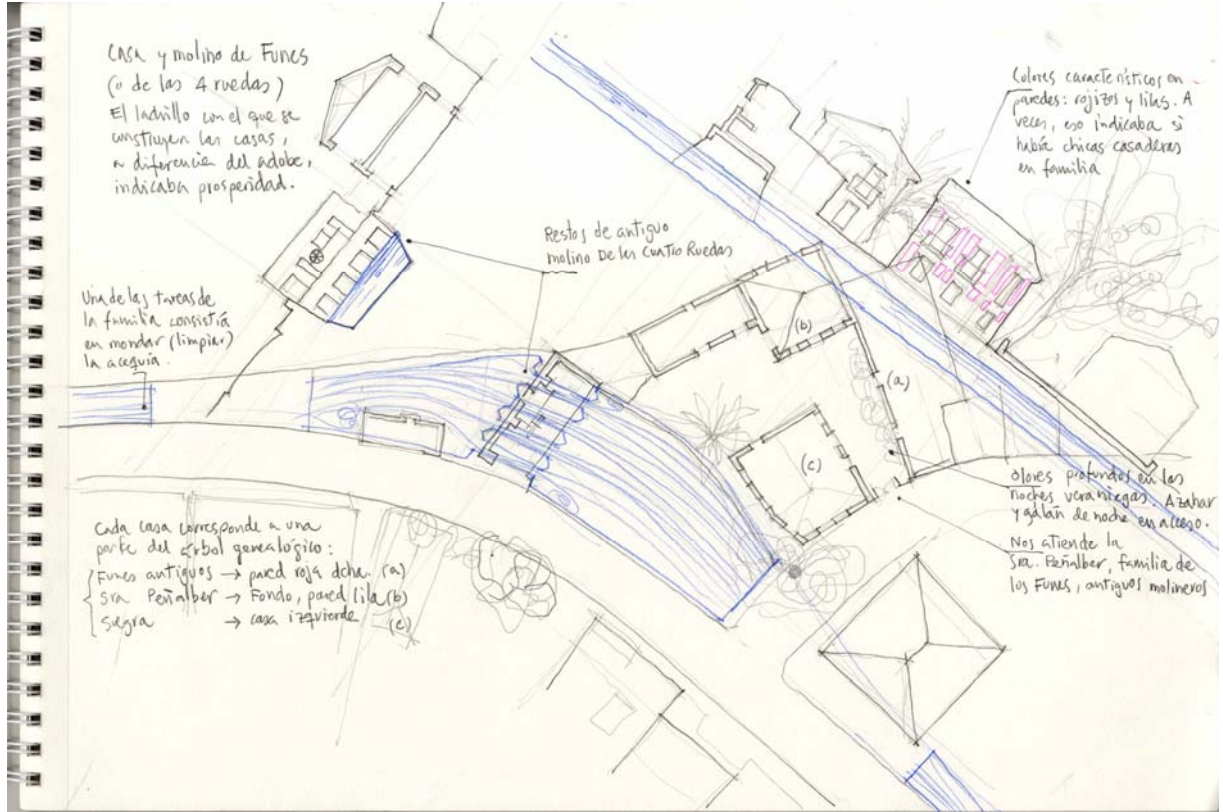 Casa y molino de Funes
(o de las 4 ruedas)
El ladrillo con el que se
construyen las casas,
a diferencia del adobe,
indicaba prosperidad.
Colores característicos en
paredes: rojizos y lilas. A
veces, eso indicaba si
había chicas casaderas
en familia
Restos de antiguo
molino De las Cuatro Ruedas
Una de las tareas de
la familia consistía
en mondar (limpiar)
la acequia.
(b)
(a)
(c)
olores profundos en las
noches veraniegas. Azahar
y galán de noche en acceso.
Nos atiende la
Sra. Peñalber, familia de
los Funes, antiguos molineros
Cada casa corresponde a una
parte del árbol genealógico:
Funes antiguos → pared roja dcha. (a)
Sra Peñalber → Fondo, pared lila (b)
Suegra → casa izquierda (c)